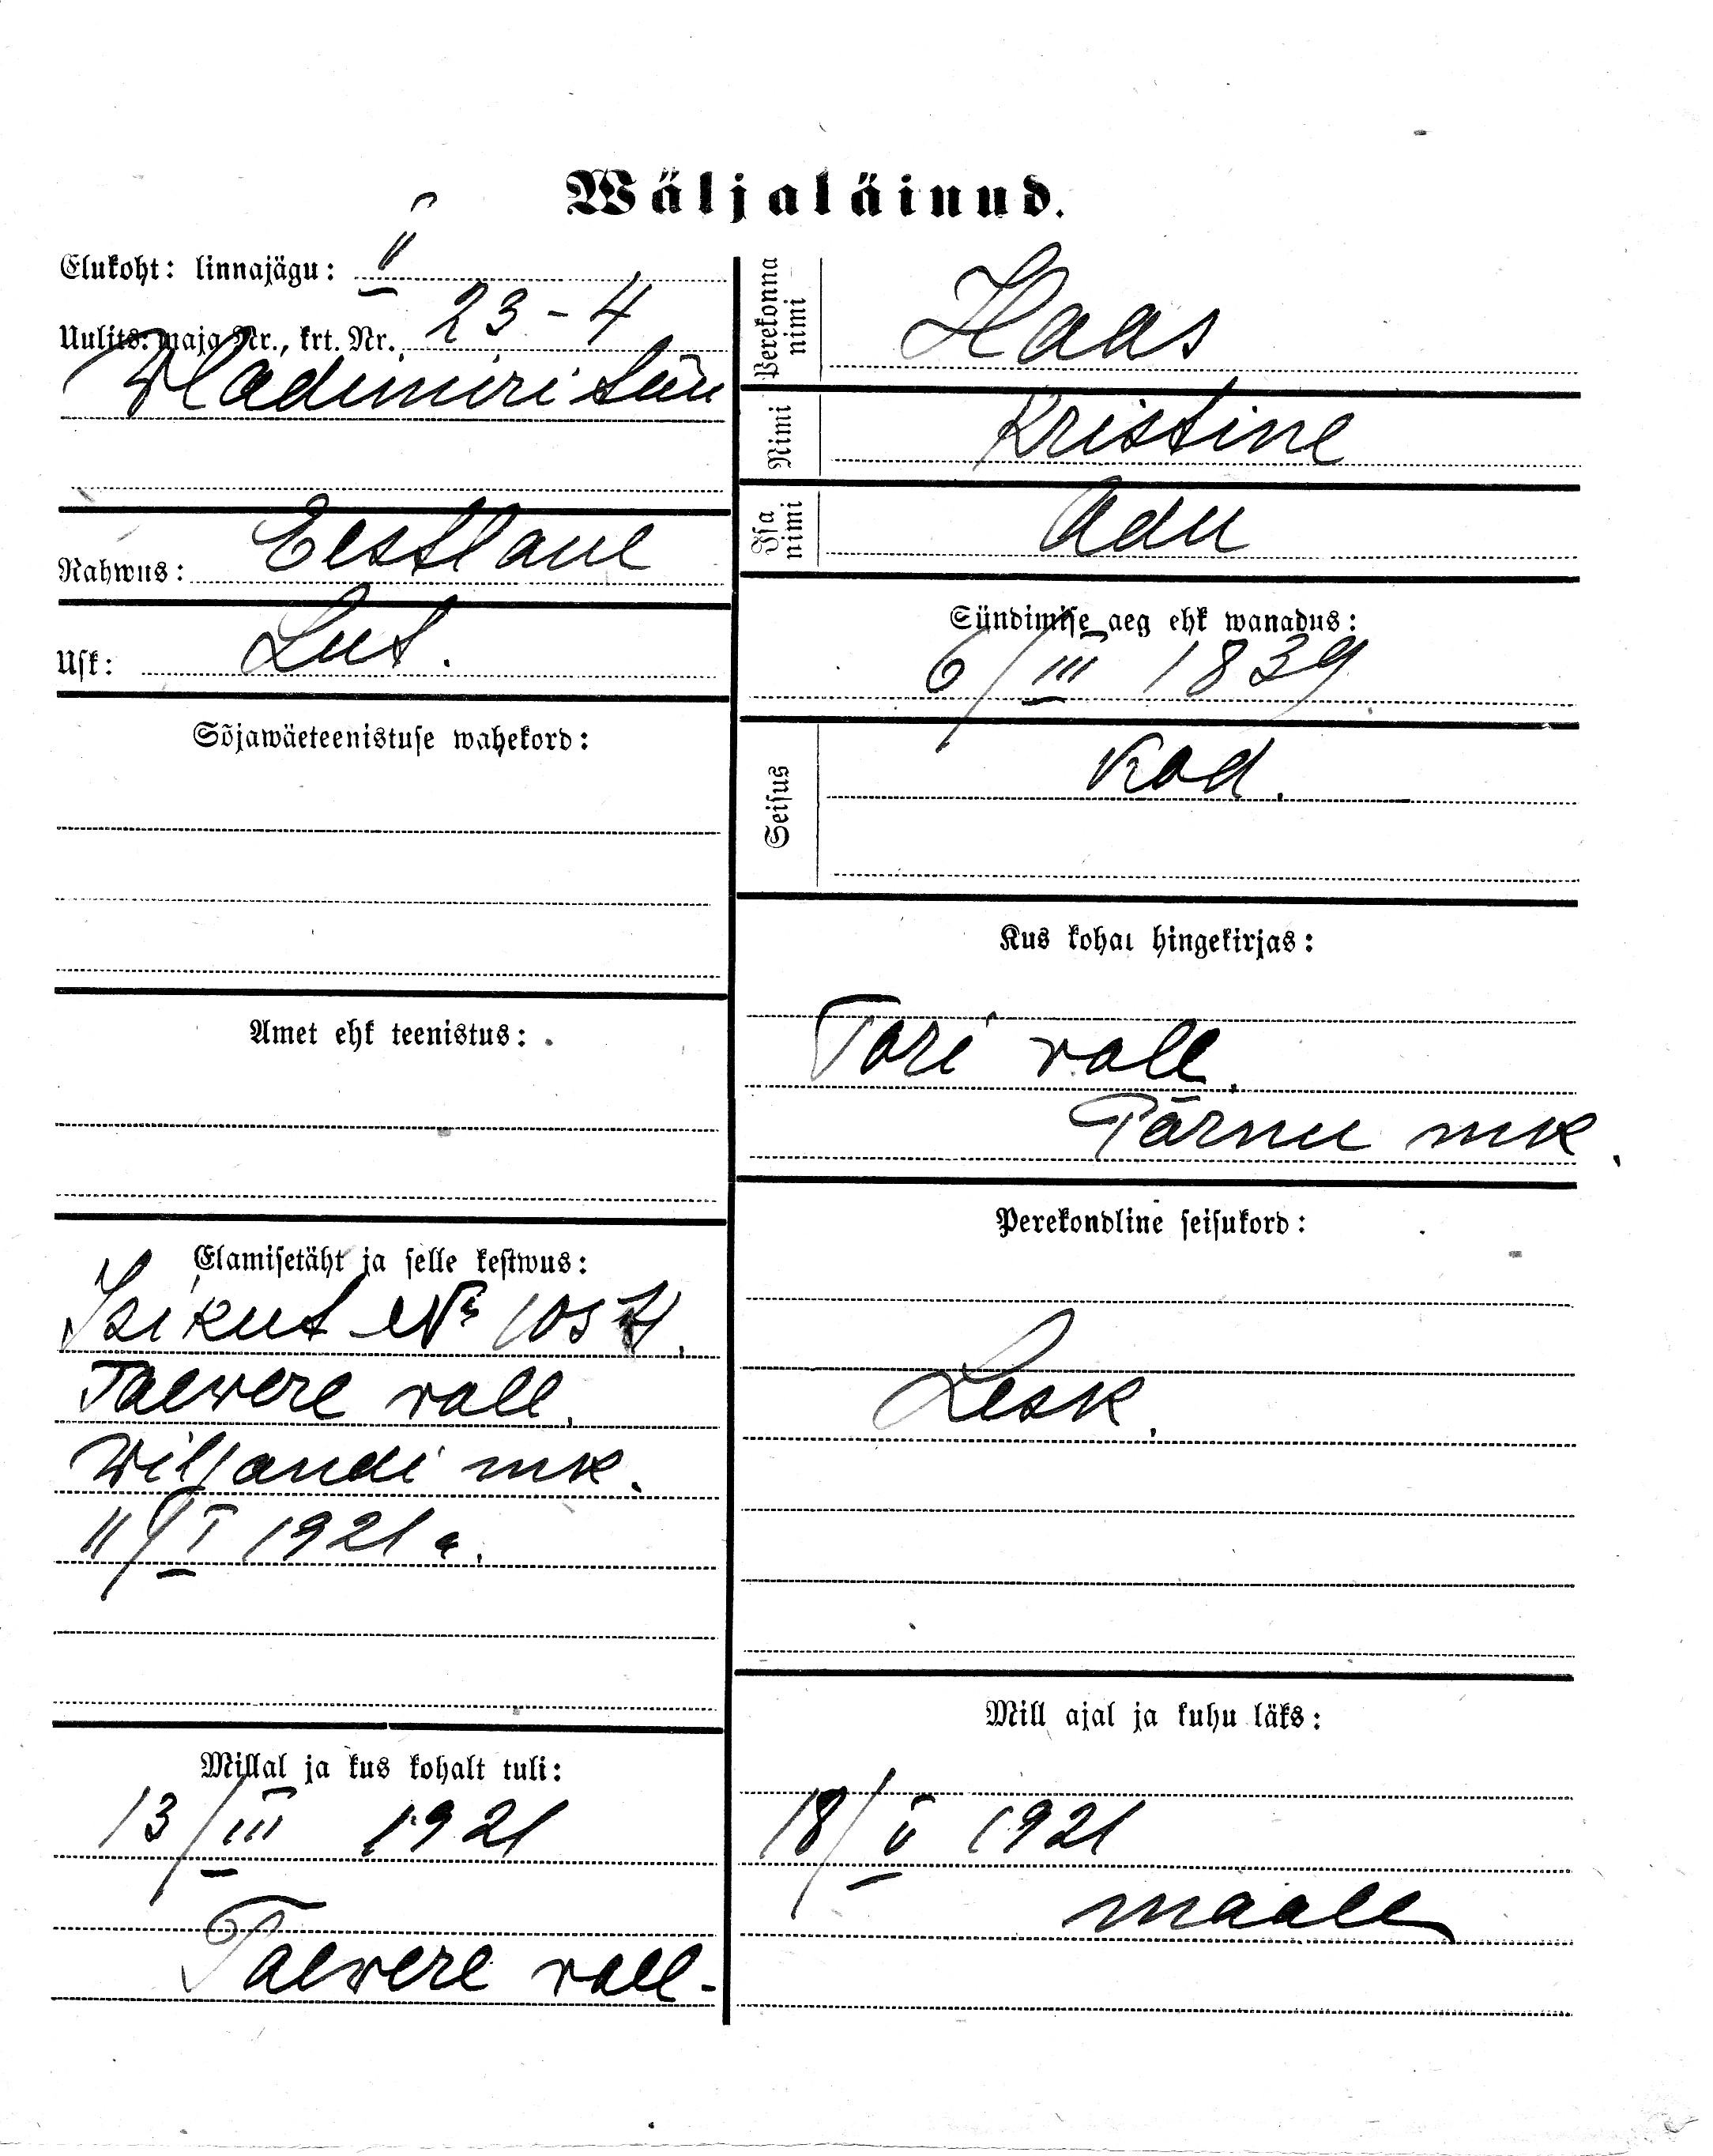 Wäljaläinud.
Elukoht: linnajägu: II
Uulits. maja Nr., krt. Nr. 23-4
Wladimiri tän
Rahwus: Eestlane
Usk: Lut.
Sõjawäeteenistuse wahekord:
Amet ehk teenistus:
Elamisetäht ja selle kestwus:
Isikut № 1054.
Taewere vall.
Wiljandi mk.
1921 a.
Millal ja kus kohalt tuli:
13/III 1921
Taewere vall-
Perekonna nimi Haas
Nimi Kristine
Isa nimi Adu
Sündimise aeg ehk wanadus:
6/III 1839
Seisus kod.
Kus kohal hingekirjas:
Tori vall.
Pärnu mk.
Perekondline seisukord:
Lesk.
Mill ajal ja kuhu läks:
18/V 1921
maale